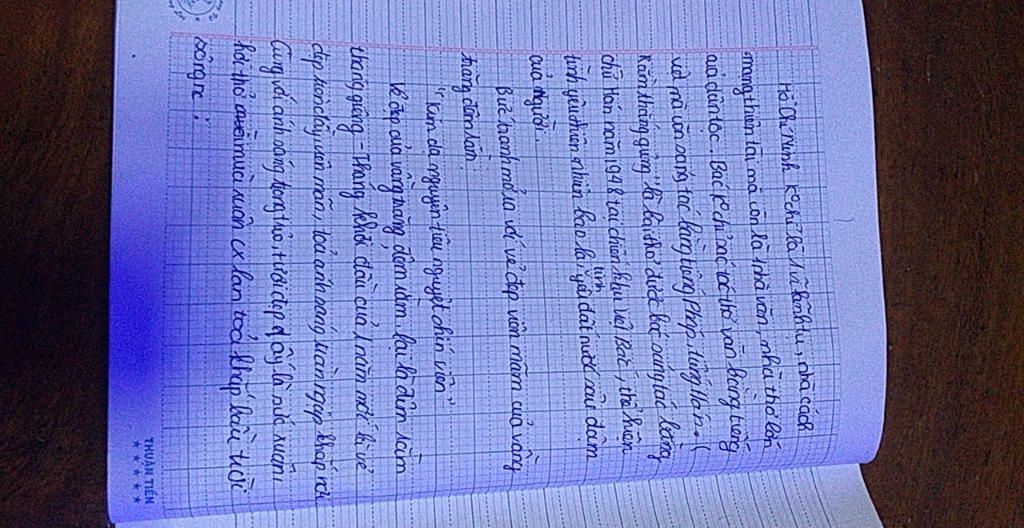 Hồ Chí Minh ko chỉ là 1 vị lãnh tụ, nhà cách
mạng thiên tài mà còn là 1 nhà văn, nhà thơ lớn
của dân tộc. Bác ko chỉ sáng tác thơ văn bằng tiếng
việt mà còn sáng tác bằng tiếng Pháp, tiếng Hán. (
Rằm tháng giêng" là bài thơ được bác sáng tác bằng
chữ Hán năm 1948 tại chiến khu Việt Bắc, thể hiện
tình yêu thiên nhiên bao la tình yêu đất nước sâu đậm
của Người.
Bức tranh mở ra với vẻ đẹp viên mãn của vầng
trăng đêm rằm:
"Kim dạ nguyên tiêu nguyệt chính viên"
Vẻ đẹp của vầng trăng đêm rằm, lại là đêm rằm
tháng giêng - tháng khởi đầu của 1 năm mới vì vẻ
đẹp tròn đầy, viên mãn, toả ánh sáng tràn ngập khắp nơi
Cùng với ánh sáng trong trẻo, tươi đẹp ấy là nước xuân,
hơi thở mùa xuân cx lan toả khắp bầu trời
sông nc:
THUẬN TIẾN